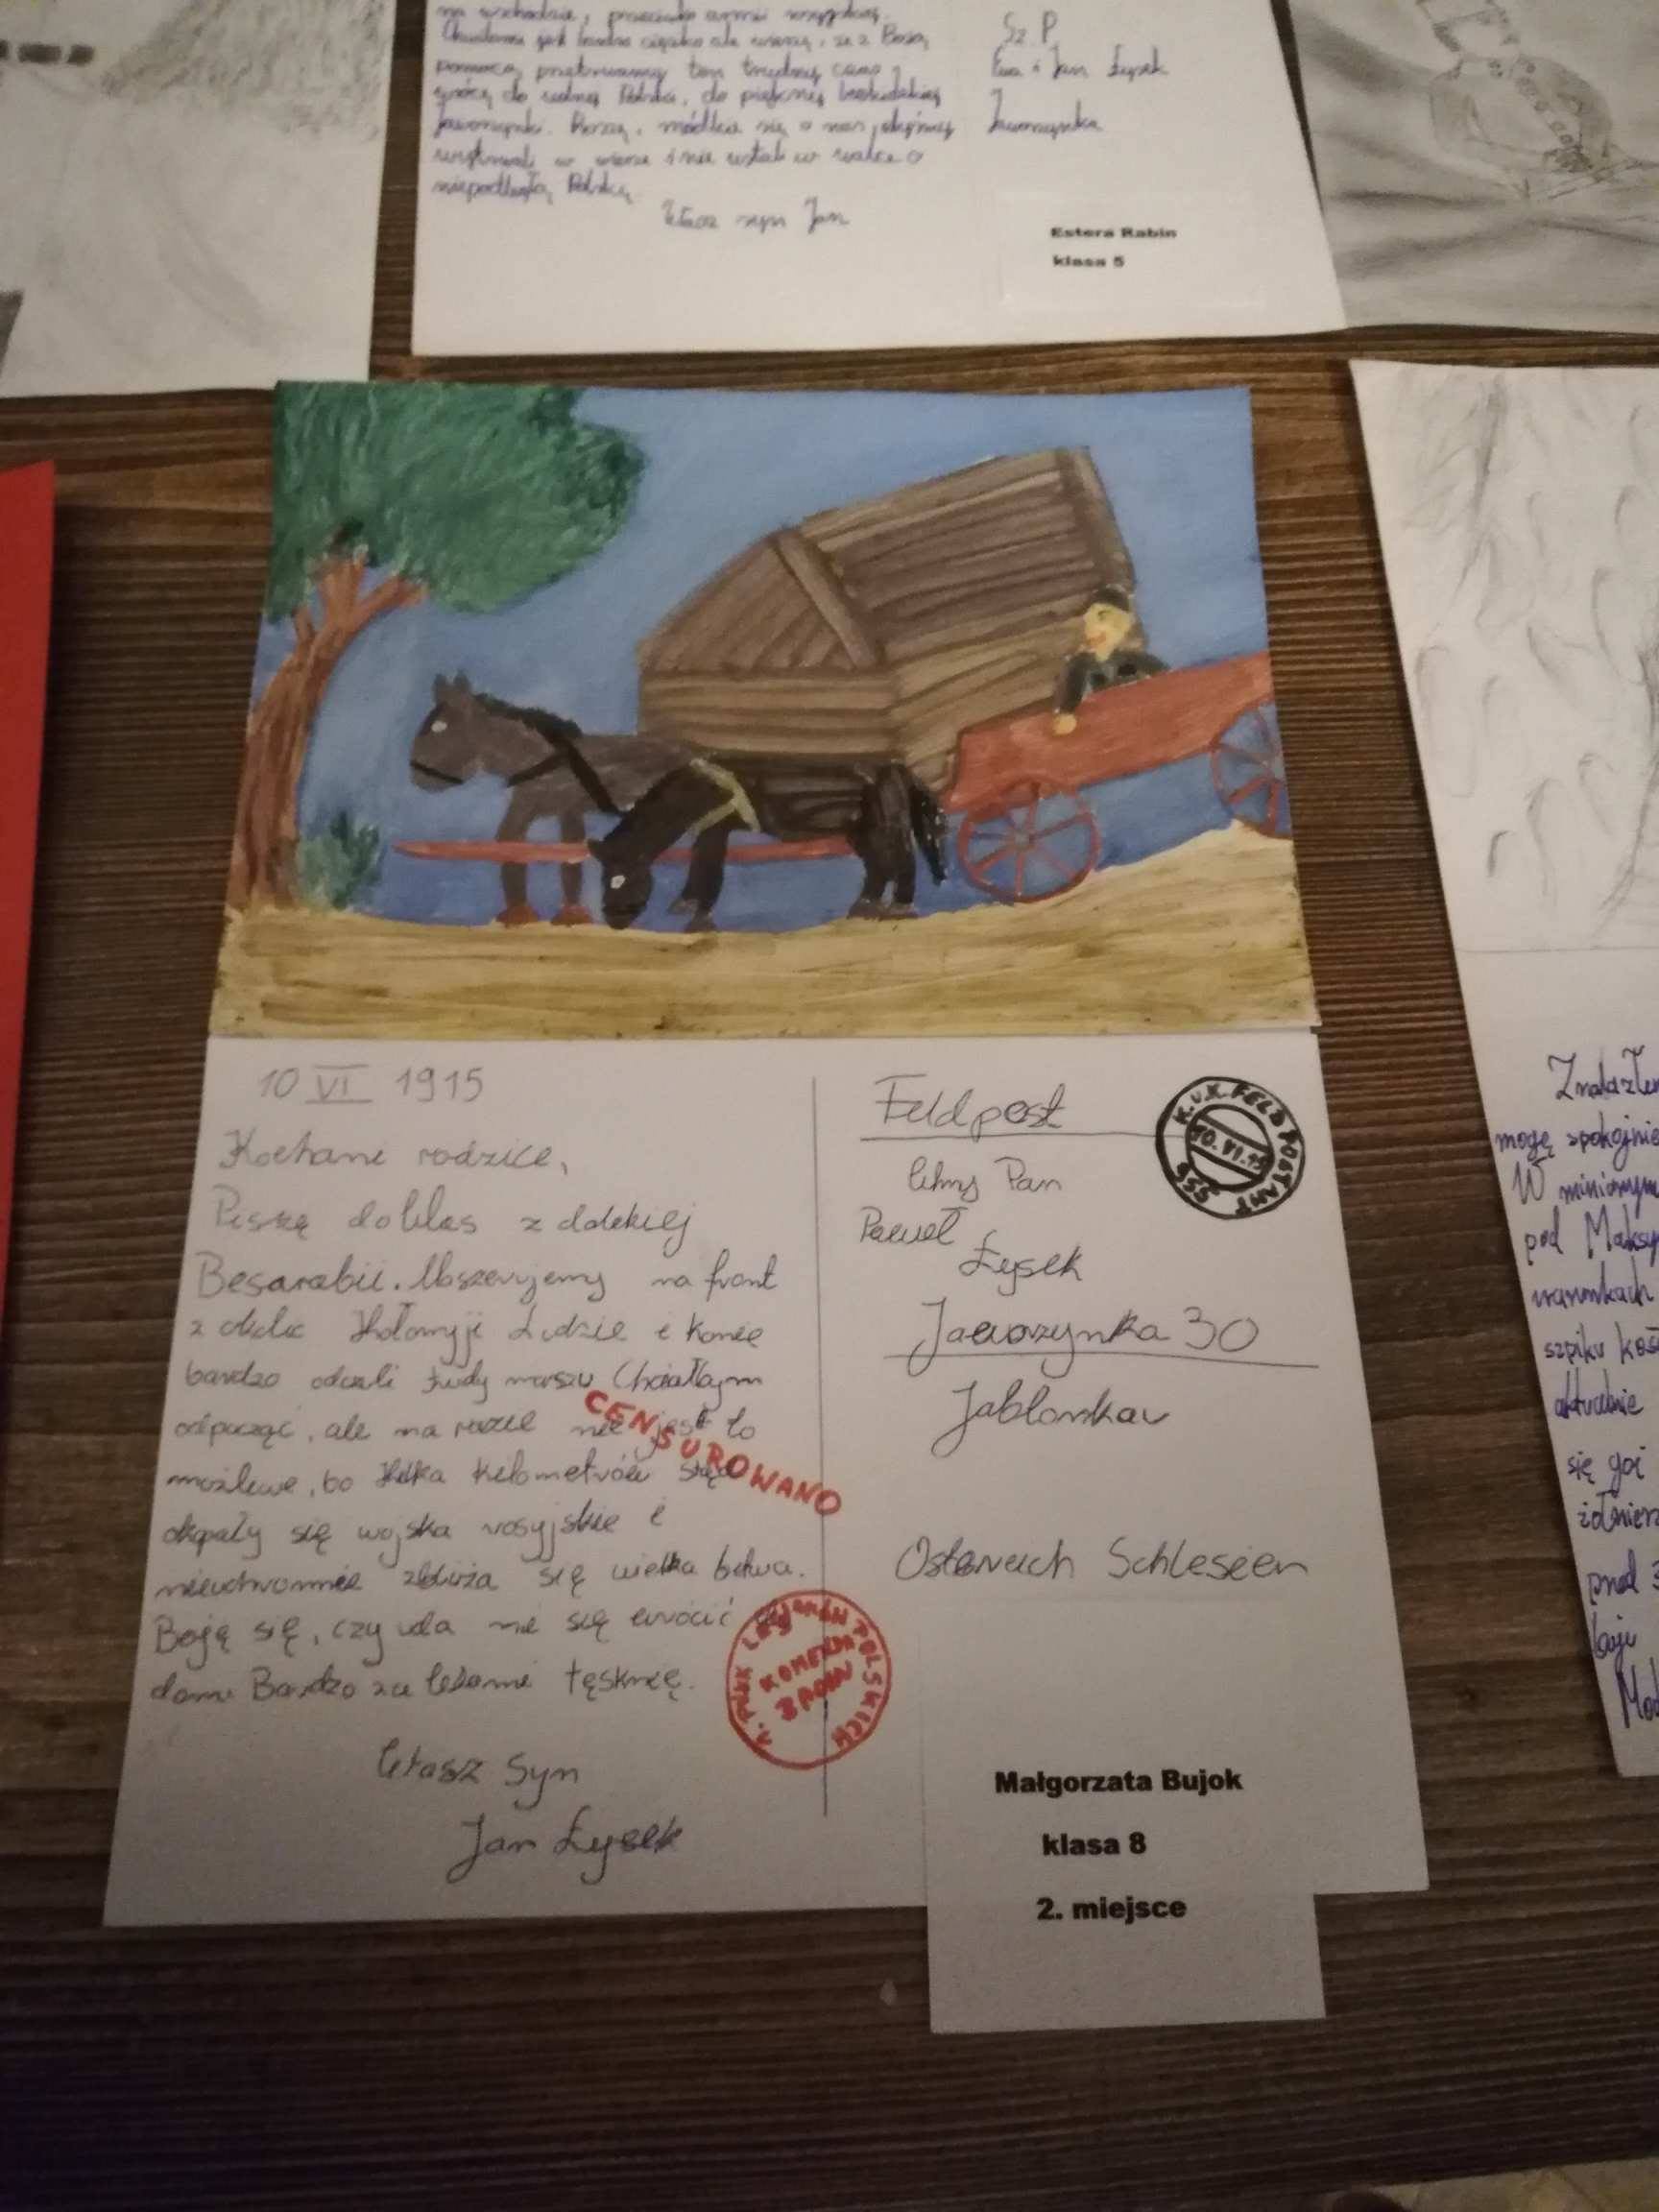 na wschodzie, przeciwko armii rosyjskiej.
jest bardzo ciężko ale wierzę, że z Bożą
pomocą przetrwamy ten trudny czas i
wrócę do wolnej Polski, do pięknej beskidzkiej
Jaworzynki. Proszę, módlcie się o nas, abyśmy
wytrwali w wierze i nie ustali w walce o
niepodległą Polskę
Wasz syn Jan
Sz. P.
Ewa i Jan Łysek
Jaworzynka
Estera Rabin
klasa 5
10 VI 1915
Kochani rodzice,
Piszę do Was z dalekiej
Besarabii. Maszerujemy na front
z okolic Kołomyji Ludzie i konie
bardzo odczuli trudy marszu Chciałbym
odpocząć, ale na razie nie jest to
możliwe, bo kilka kilometrów stąd
okopały się wojska rosyjskie i
nieuchronnie zbliża się wielka bitwa.
Boję się, czy uda mi się wrócić do
domu Bardzo za Wami tęsknię.
Wasz Syn
Jan Łysek
CENSUROWANO
1. PUŁK LEGJONÓW POLSKICH
KOMENDA
3 BAONU
Feldpost
K.u.K. FELDPOSTAMT
10.VI.15
355
Wny Pan
Paweł
Łysek
Jaworzynka 30
Jablonkau
Osterreich Schlesien
Małgorzata Bujok
klasa 8
2. miejsce
mogę spokojnie
W minionym
pod
warunkach
szpiku
aktualnie
się goi
pod